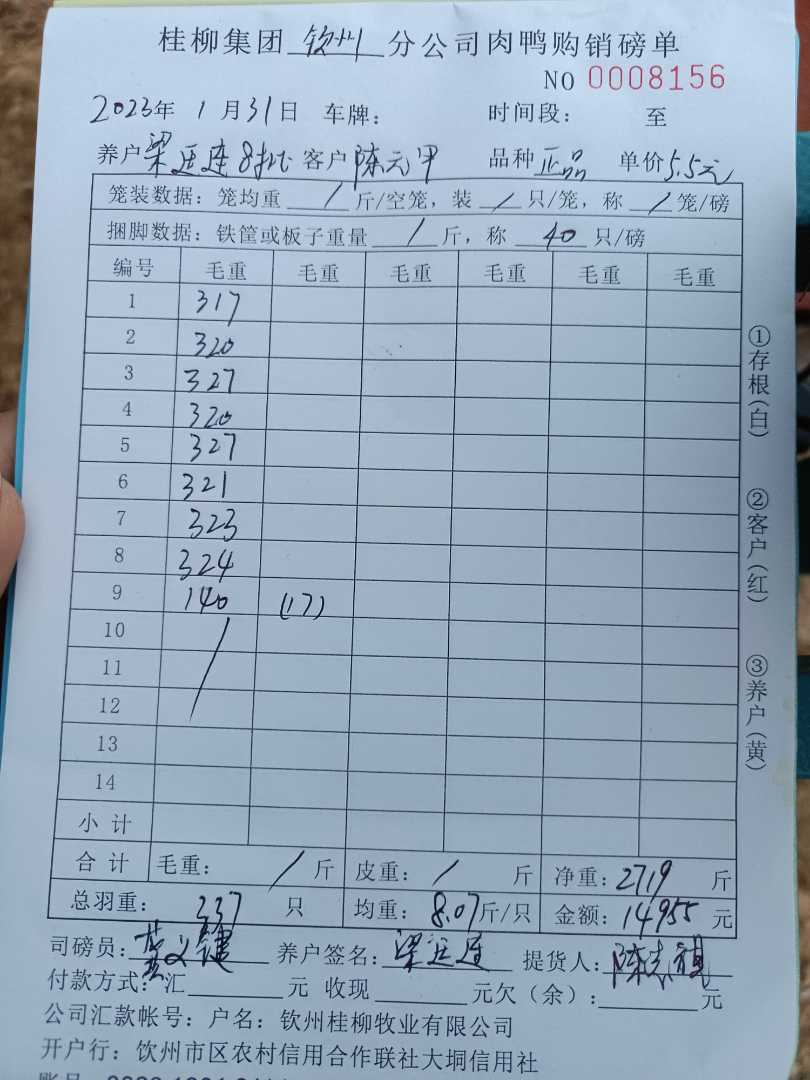 桂柳集团 钦州 分公司肉鸭购销磅单
NO 0008156
2023年 1月31日 车牌： 时间段： 至
养户 梁廷连8批 客户 陈元甲 品种 正品 单价5.5元
笼装数据：笼均重 / 斤/空笼，装 / 只/笼，称 / 笼/磅
捆脚数据：铁筐或板子重量 / 斤，称 40 只/磅
编号 毛重 毛重 毛重 毛重 毛重 毛重
1 317
2 320
3 327
4 320
5 327
6 321
7 323
8 324
9 140 (17)
10 /
11
12
13
14
小计
合计 毛重： / 斤 皮重： / 斤 净重：2719 斤
总羽重： 337 只 均重：8.07斤/只 金额：14955元
司磅员： 养户签名：梁廷连 提货人：陈志
付款方式：汇 元 收现 元欠（余）： 元
公司汇款帐号：户名：钦州桂柳牧业有限公司
开户行：钦州市区农村信用合作联社大垌信用社
①存根（白） ②客户（红） ③养户（黄）